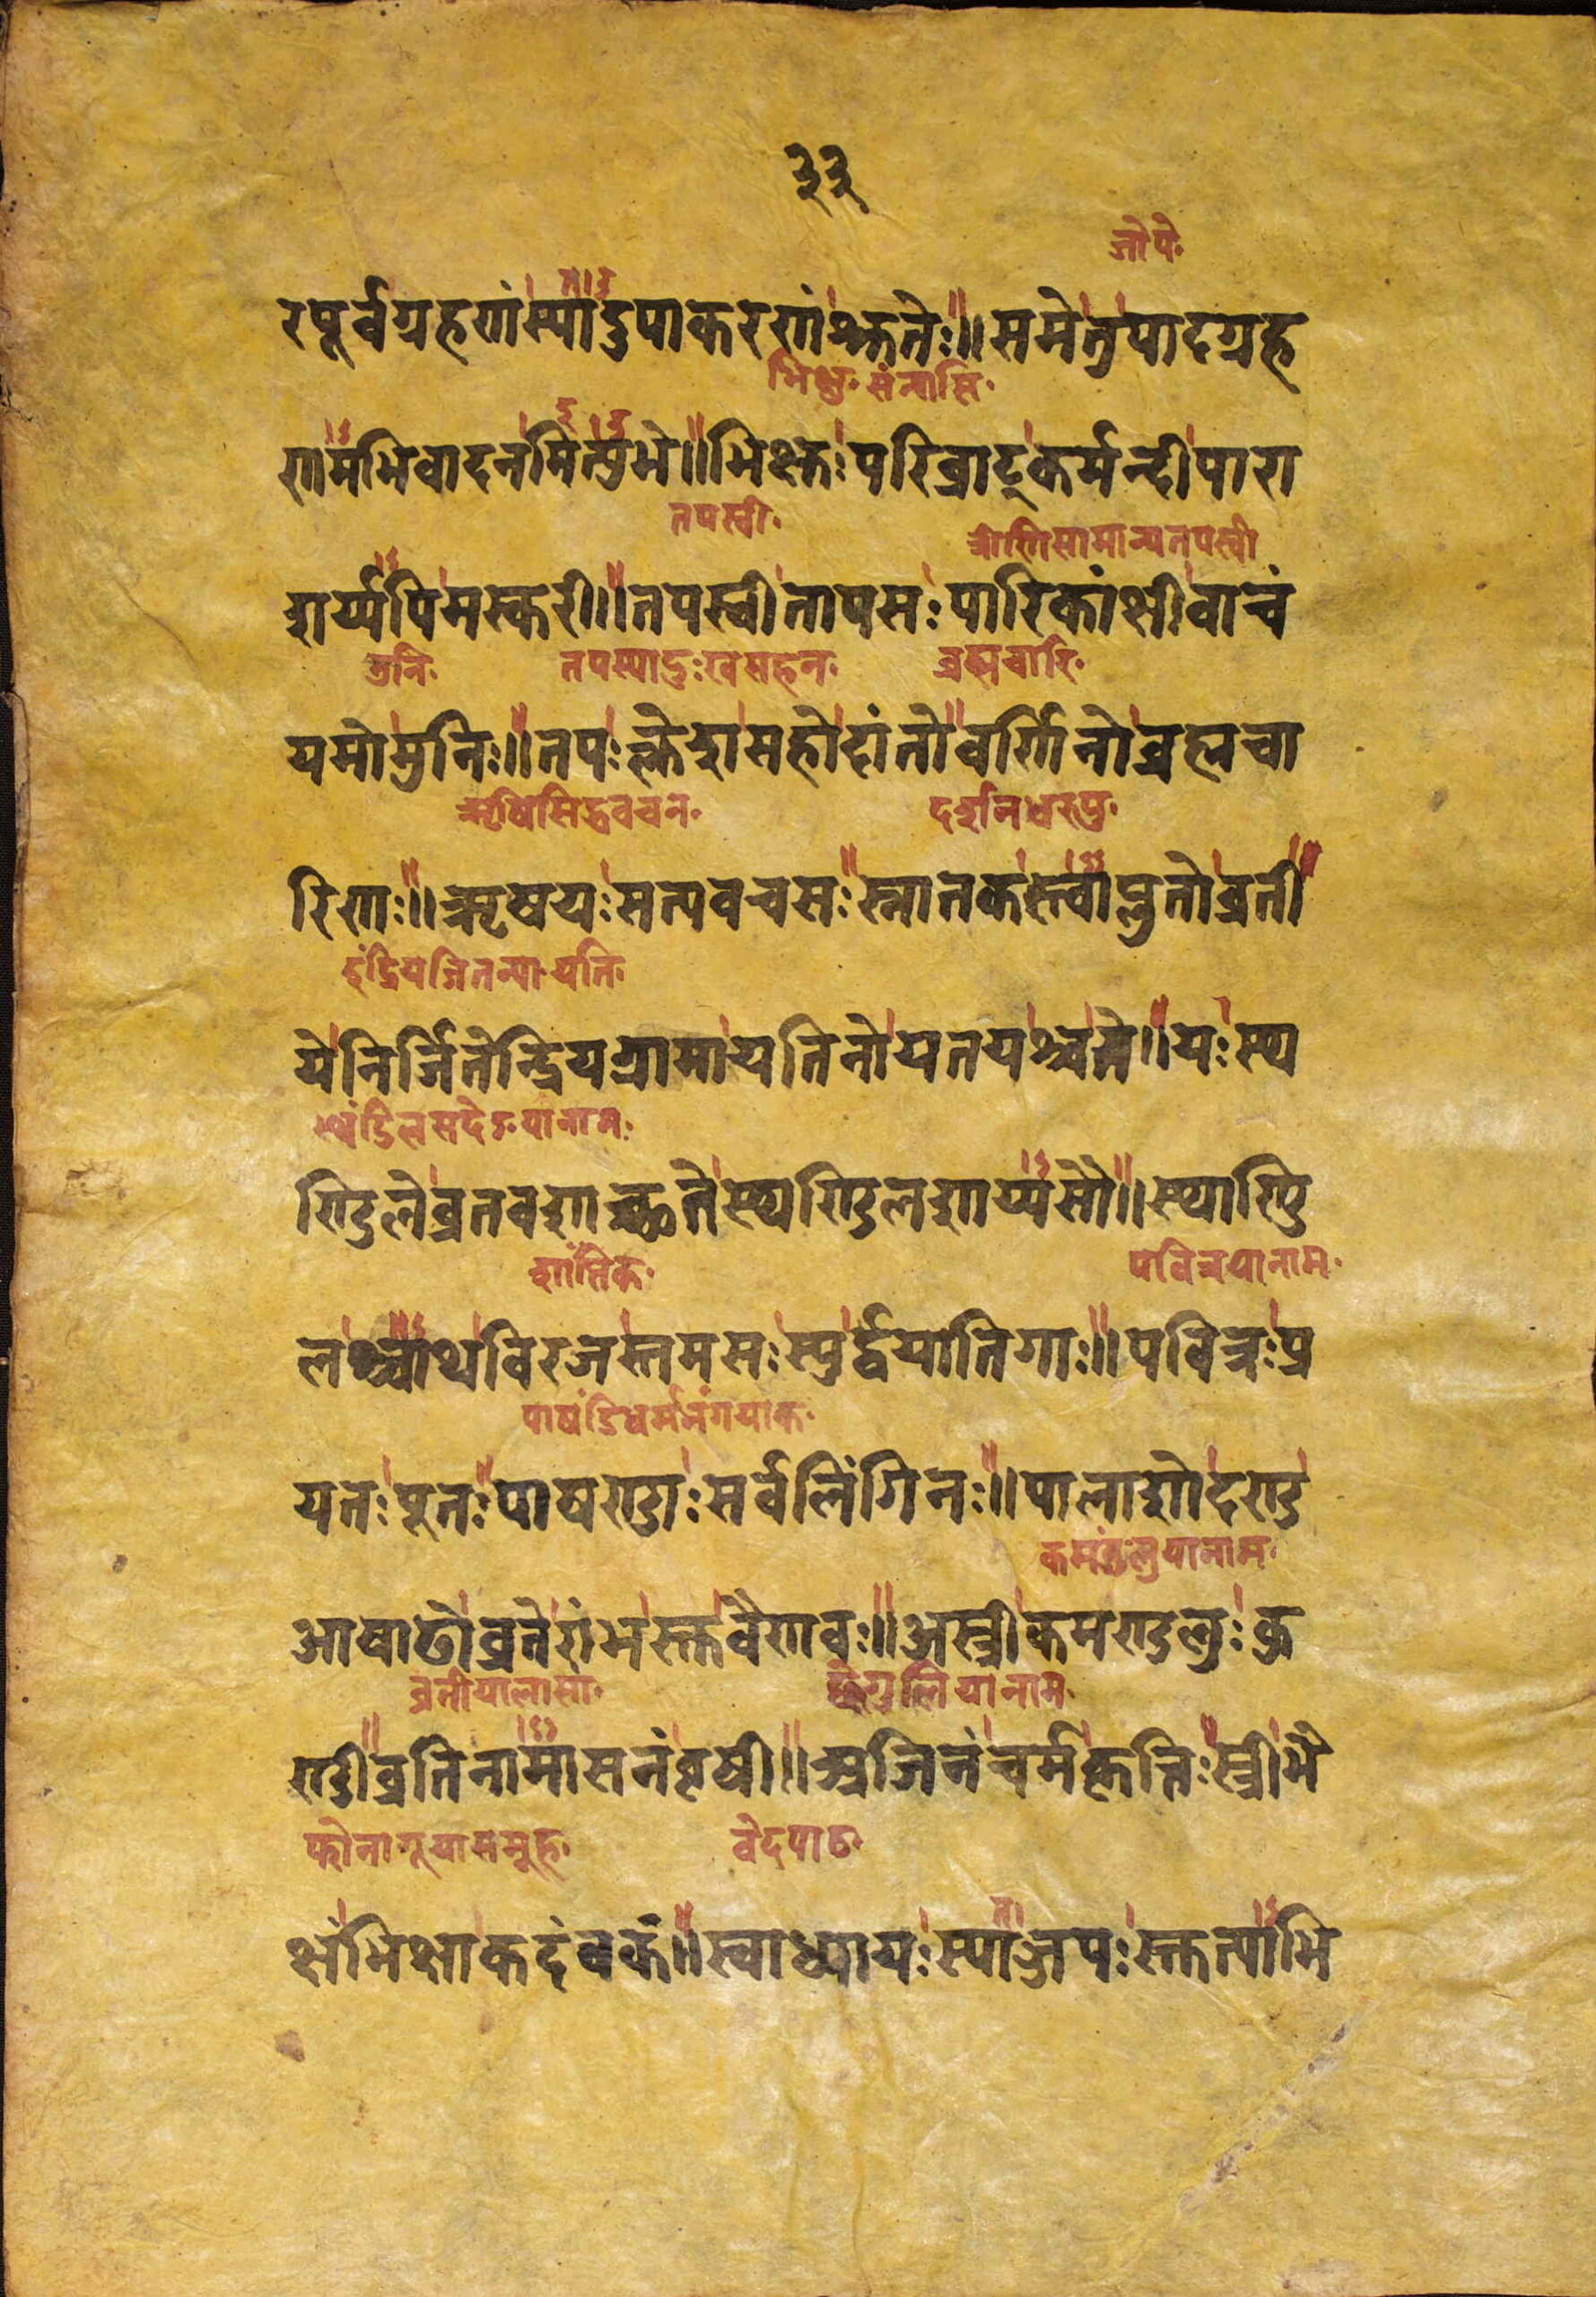 ३३
जोपे.
रपूर्वग्रहणंस्यादुपाकरणंश्रुतेः॥समेतुपादग्रह
भिक्षु.संन्यासि.
णमभिवादनमित्युभे॥भिक्षुःपरिव्राट्कर्मन्दीपारा
तपस्वी. सामान्यतपस्वी
शर्य्यपिमस्करी॥तपस्वीतापसःपारिकांक्षीवाचं
मुनि. तपस्यादुःखसहन. ब्रह्मचारि.
यमोमुनिः॥तपःक्लेशसहोदांतोवर्णिनोब्रह्मचा
ऋषिसिद्धवचन.
रिणः॥ऋषयःसत्यवचसःस्नातकस्त्वाप्लुतोव्रती
इंद्रियजितन्यायति.
येनिर्जितेन्द्रियग्रामायतिनोयतयश्चते॥यःस्थ
स्थंडिलसदेङयानाम.
ण्डिलेव्रतवशाच्छेतेस्थण्डिलशाय्यसौ॥स्थाण्डि
शांतिक. पवित्रयानाम.
लश्चाथविरजस्तमसःस्युर्द्वयातिगाः॥पवित्रःप्र
पाषंडिधर्मभंगयाक.
यतःपूतःपाषण्डाःसर्वलिंगिनः॥पालाशोदण्ड
कमंडलुयानाम.
आषाढोव्रतेरांभस्तुवैणवः॥अस्त्रीकमण्डलुःकु
व्रतीयालासा. यानाम
ण्डीव्रतिनामासनंबृषी॥अजिनंचर्मकृत्तिःस्त्रीभै
फोनागूयासमूह. वेदपाठ.
क्षंभिक्षाकदंबकं॥स्वाध्यायःस्याज्जपःसुत्याभि